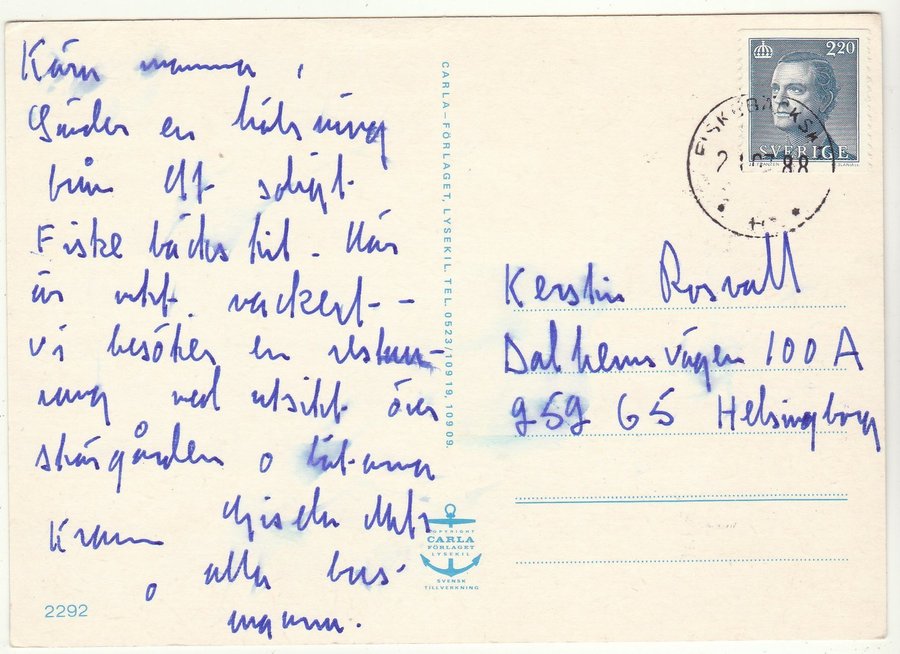 Kära mamma,
Sänder en hälsning
från ett soligt
Fiskebäckskil. Här
är vackert -
vi besöker en restau-
rang med utsikt över
skärgården o båtarna
Kram
o alla bus-
ungarna.
2292
CARLA-FÖRLAGET, LYSEKIL. TEL. 0523/109 19, 109 09
COPYRIGHT
CARLA
FÖRLAGET
LYSEKIL
SVENSK
TILLVERKNING
220
SVERIGE
FISKEBÄCKSKIL
88
Kerstin Rosvall
Dalhemsvägen 100 A
Helsingborg